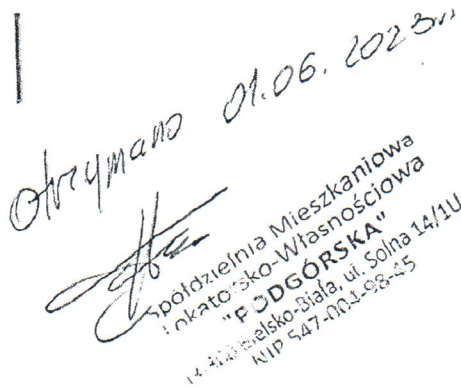 Otrzymano 01.06.2023r.
Spółdzielnia Mieszkaniowa
Lokatorsko-Własnościowa
"PODGÓRSKA"
Bielsko-Biała, ul. Solna 14/1U
NIP 547-004-98-45